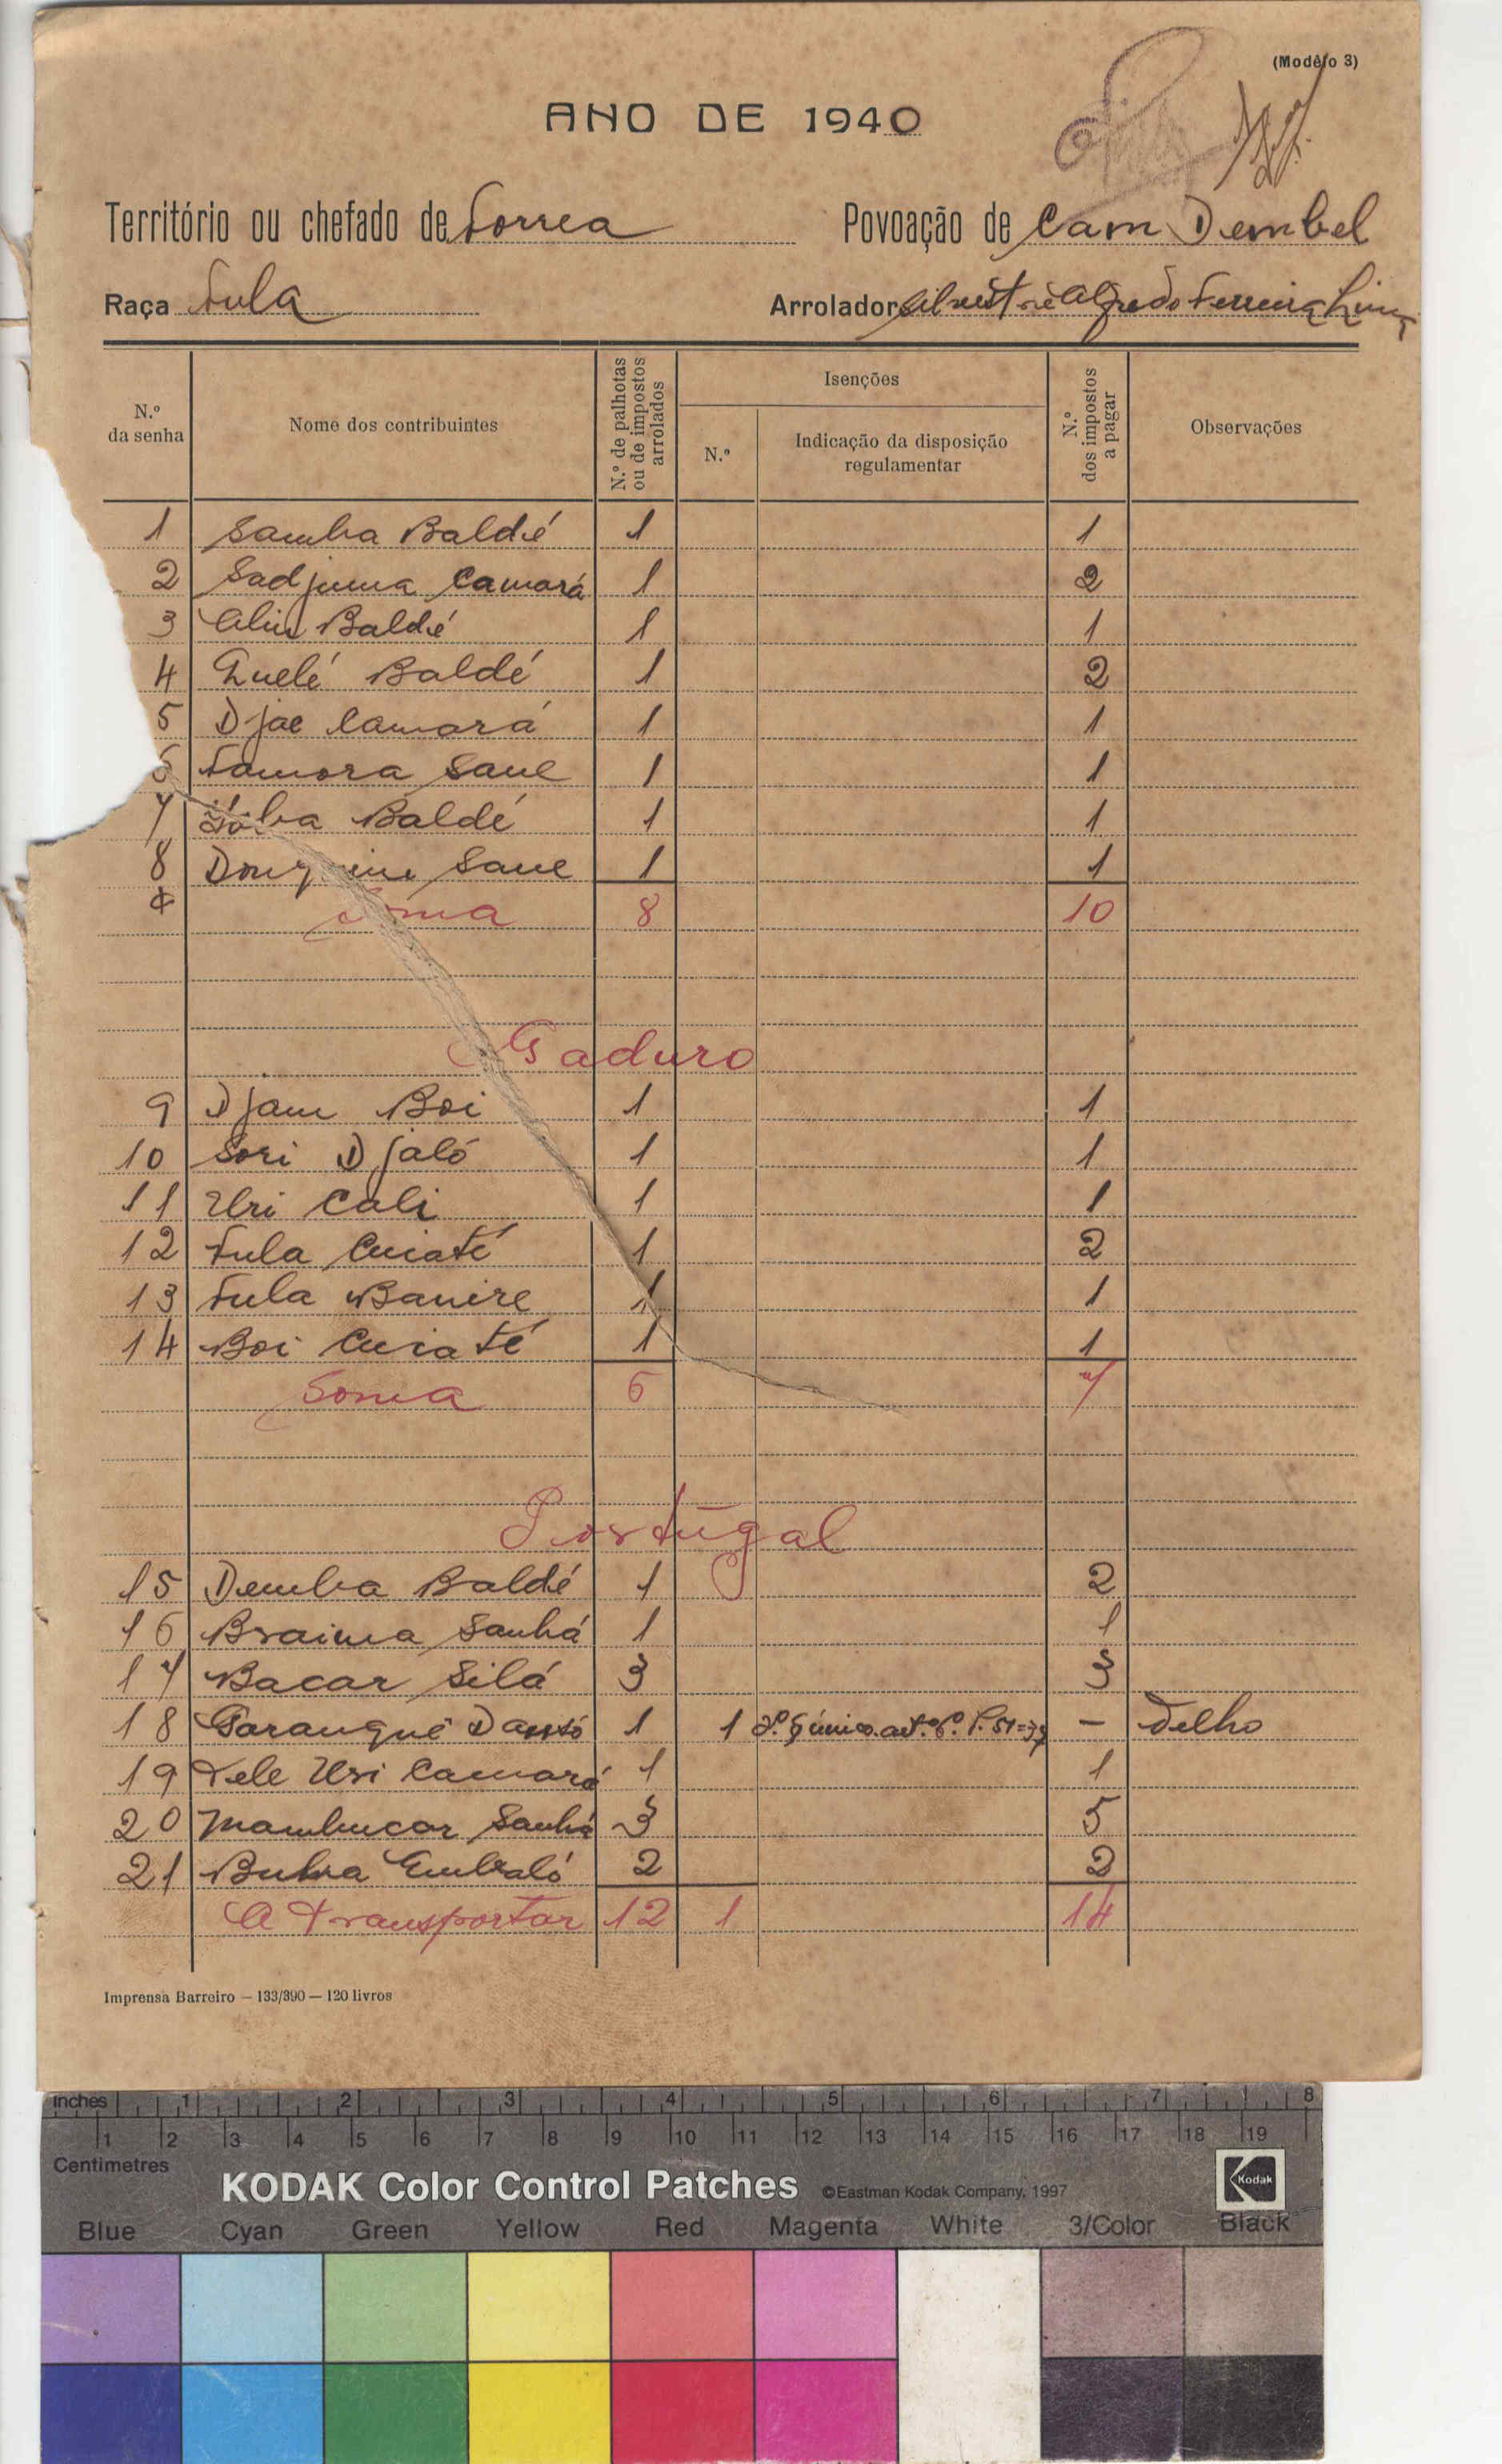 (Modêlo 3)
ANO DE 1940
Território ou chefado de Forrea Povoação de Cam Dembel
Raça Fula Arrolador Silvestre Alfredo Ferreira Lima
N.º da senha
Nome dos contribuintes
N.º de palhotas ou de impostos arrolados
Isenções
N.º
Indicação da disposição regulamentar
N.º dos impostos a pagar
Observações
1 Samba Baldé 1 1
2 Sadjuma Camará 1 2
3 Aliu Baldé 1 1
4 Guelé Baldé 1 2
5 Djae Camará 1 1
6 Famora Sane 1 1
7 Baldé 1 1
8 Sane 1 1
Soma 8 10
Gaduro
9 Djam Boi 1 1
10 Sori Djaló 1 1
11 Uri Cali 1 1
12 Fula Cuiaté 1 2
13 Fula Banire 1 1
14 Boi Cuiaté 1 1
Soma 6 7
Portugal
15 Demba Baldé 1 2
16 Braima Sanhá 1 1
17 Bacar Silá 3 3
18 Garanqué Dansó 1 1 § único art.º 6.º — Velho
19 Tele Uri Camará 1 1
20 Mambucar Sanhá 3 5
21 Bubra Embaló 2 2
A transportar 12 1 14
Imprensa Barreiro — 133/390 — 120 livros
inches 1 2 3 4 5 6 7 8
1 2 3 4 5 6 7 8 9 10 11 12 13 14 15 16 17 18 19
Centimetres
KODAK Color Control Patches ©Eastman Kodak Company, 1997 Kodak
Blue Cyan Green Yellow Red Magenta White 3/Color Black